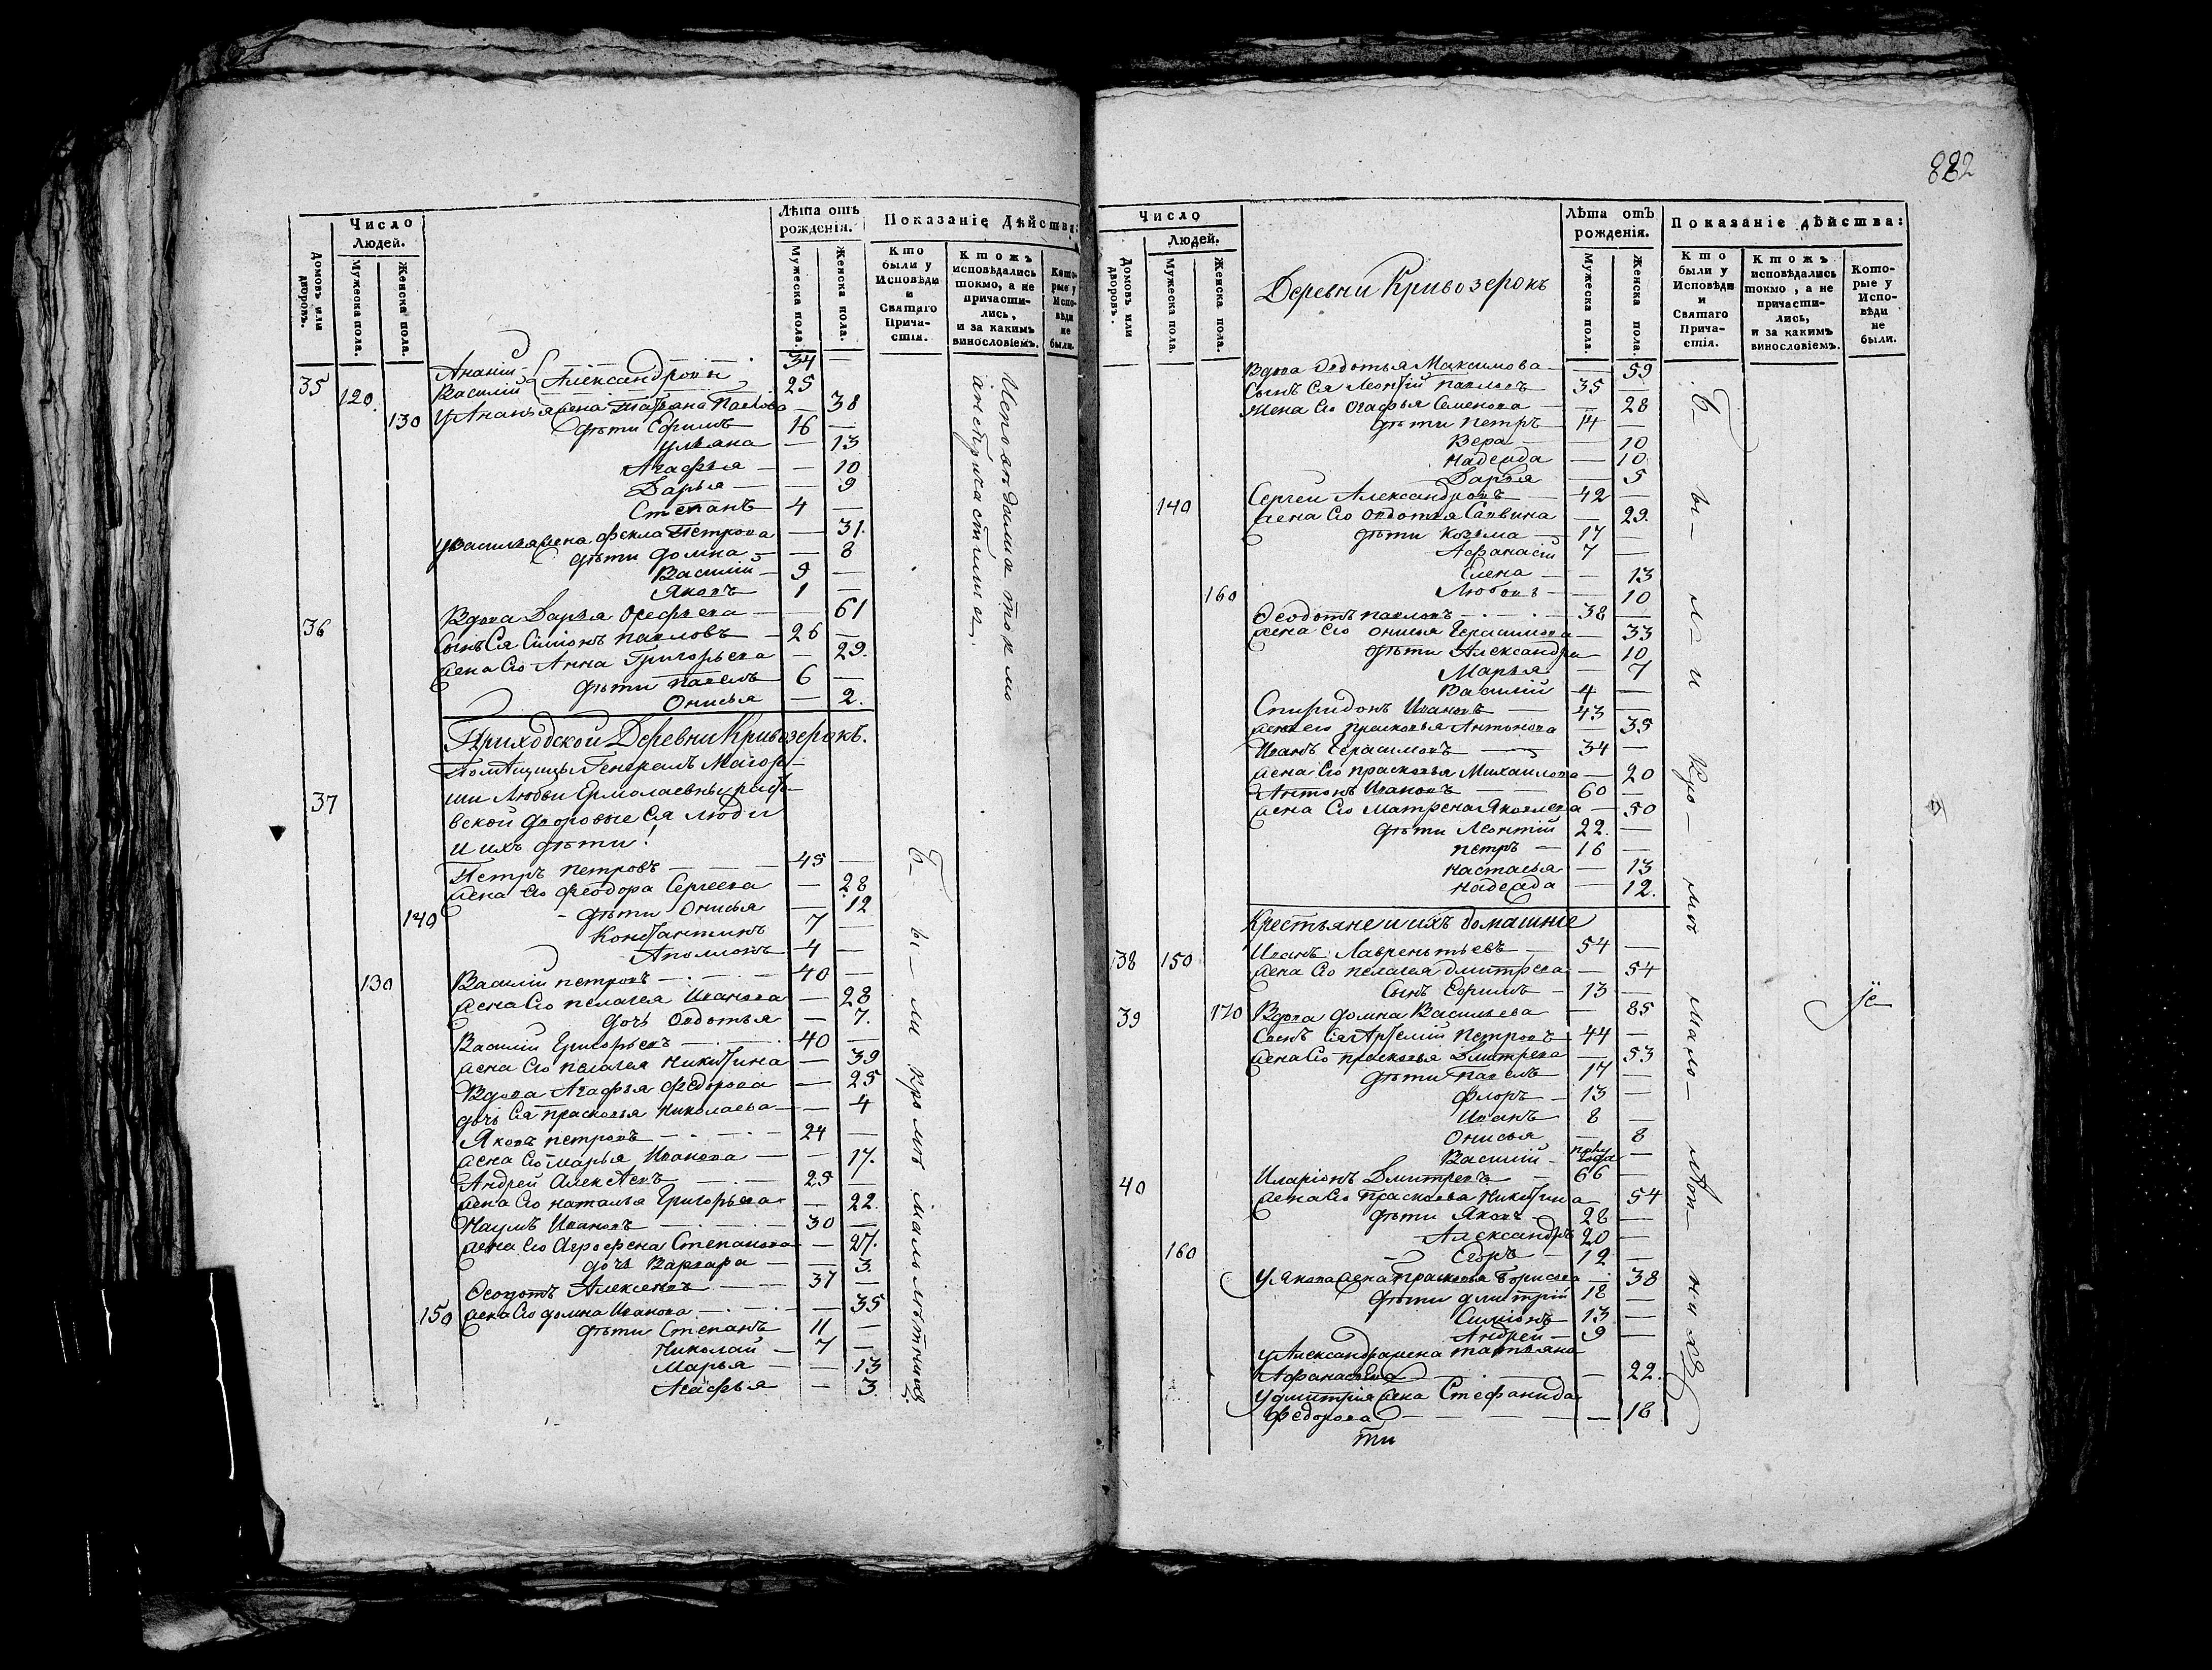 882
Число
Людей.
Лѣта отъ
рожденія.
Показаніе дѣйства:
Домовъ или
дворовъ.
Мужеска пола.
Женска пола.
Мужеска пола.
Женска пола.
Кто
были у
Исповѣди
и
Святаго
Прича-
стія.
Ктожъ
исповѣдались
токмо, а не
причасти-
лись,
и за какимъ
винословіемъ.
Кото-
рые у
Испо-
вѣди
не
были.
Ананій Александровы 34 —
35 120 Василій 25
130 У Ананья жена Татьяна Павлова — 38
дѣти Ефимъ 16 —
Ульяна — 13
Агафья — 10
Дарья — 9
Степанъ 4 —
У Василья жена Фекла Петрова — 31.
дѣти Домна — 8
Василій 9 —
Яковъ 1 —
36 Вдова Дарья Орефьева — 61
Сынъ Ея Симіонъ Павловъ 26 —
жена Его Анна Григорьева — 29.
дѣти Павелъ 6 —
Онисья — 2.
Исповѣдались токмо
а непричастились.
Приходской Деревни Кривозерокъ.
Помѣщицы Генералъ Маіор-
37 ши Любви Ермолаевны
вской дворовые Ея люди
и ихъ дѣти!
Петръ Петровъ 45 —
жена Его Феодора Сергеева — 28
140 дѣти Онисья — 12
Константинъ 7 —
Аполлонъ 4 —
130 Василій Петровъ 40 —
жена Его Пелагея Иванова — 28
дочь Овдотья — 7.
Василій Григорьевъ 40 —
жена Его Пелагея Никитина — 39
Вдова Агафья Федорова — 25
дочь Ея Прасковья Николаева — 4
Яковъ Петровъ 24 —
жена Его Марья Иванова — 17.
Андрей Алексѣевъ 25 —
жена Его Наталья Григорьева — 22.
Наумъ Ивановъ 30 —
жена Его Агрофена Степанова — 27.
дочь Варвара — 3.
Феодотъ Алексеевъ 37 —
150 жена Его Домна Иванова — 35
дѣти Степанъ 11 —
Николай 7 —
Марья — 13
Агафья — 3.
Были кромѣ малолѣтнихъ.
Число
Людей.
Деревни Кривозерокъ
Лѣта отъ
рожденія.
Показаніе дѣйства:
Домовъ или
дворовъ.
Мужеска пола.
Женска пола.
Мужеска пола.
Женска пола.
Кто
были у
Исповѣди
и
Святаго
Прича-
стія.
Ктожъ
исповѣдались
токмо, а не
причасти-
лись,
и за какимъ
винословіемъ.
Кото-
рые у
Испо-
вѣди
не
были.
Вдова Овдотья Максимова — 59
Сынъ Ея Леонтій Павловъ 35 —
жена Его Огафья Семенова — 28
дѣти Петръ 14 —
Вера — 10
Надежда — 10
Дарья — 5
140 Сергеи Александровъ 42 —
жена Его Овдотья Саввина — 29.
дѣти Козьма 17 —
Афанасій 7 —
Елена — 13
160 Любовь — 10
Феодотъ Павловъ 38 —
жена Его Онисья Герасимова — 33
дѣти Александра — 10
Марья — 7
Василій 4 —
Спиридонъ Ивановъ 43 —
жена его Прасковья Антонова — 35
Иванъ Герасимовъ 34 —
жена Его Прасковья Михаилова — 20
Антонъ Ивановъ 60 —
жена Его Матрена Яковлева — 50
дѣти Леонтій 22. —
Петръ 16 —
Настасья — 13
Надежда — 12.
Крестьяне и ихъ домашние
38 150 Иванъ Лаврентьевъ 54 —
жена Его Пелагея Дмитрева — 54
Сынъ Ефимъ 13 —
39 170 Вдова Домна Васильева — 85
Сынъ Ея Артемій Петровъ 44 —
жена Его Прасковья Дмитрева — 53
дѣти Павелъ 17 —
Флоръ 13 —
Иванъ 8 —
Онисья — 8
Василій полугода —
40 Иларіонъ Дмитревъ 66 —
жена Его Прасковья Никитина — 54
дѣти Яковъ 28 —
Александръ 20 —
160 Егоръ 12 —
У Якова жена Прасковья Борисова — 38
дѣти Дмитрій 18 —
Симіонъ 13 —
Андрей 9 —
У Александра жена Татьяна
Афанасьева — 22.
У Дмитрия жена Стефанида
Федорова — 18
ти
Были Кромѣ малолѣтнихъ